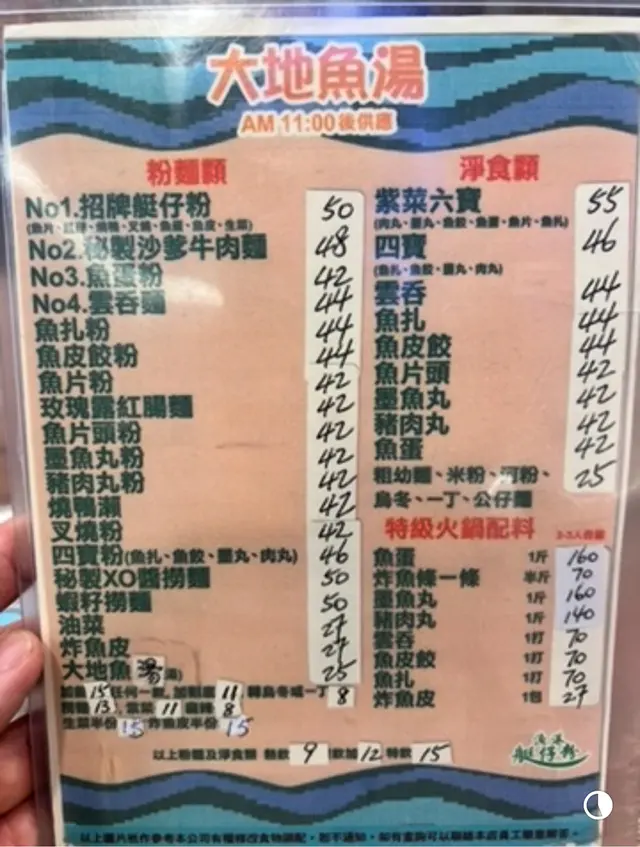 大地魚湯
AM 11:00後供應
粉麵類
No1.招牌艇仔粉 50
No2.秘製沙爹牛肉麵 48
No3.魚蛋粉 42
No4.雲吞麵 44
魚扎粉 44
魚皮餃粉 44
魚片粉 42
玫瑰露紅腸麵 42
魚片頭粉 42
墨魚丸粉 42
豬肉丸粉 42
燒鴨瀨 42
叉燒粉 42
四寶粉(魚扎、魚餃、墨丸、肉丸) 46
秘製XO醬撈麵 50
蝦籽撈麵 50
油菜 27
炸魚皮 27
大地魚湯 25
15任何一款, 11, 轉烏冬或一丁 8
13, 11 8
生菜半份 15 炸魚皮半份 15
淨食類
紫菜六寶 55
(肉丸、墨丸、魚餃、魚蛋、魚片、魚扎)
四寶 46
(魚扎、魚餃、墨丸、肉丸)
雲吞 44
魚扎 44
魚皮餃 44
魚片頭 42
墨魚丸 42
豬肉丸 42
魚蛋 42
粗幼麵、米粉、河粉、 25
烏冬、一丁、公仔麵
特級火鍋配料
魚蛋 1斤 160
炸魚條一條 半斤 70
墨魚丸 1斤 160
豬肉丸 1斤 140
雲吞 1打 70
魚皮餃 1打 70
魚扎 1打 70
炸魚皮 1包 27
以上粉麵及淨食類 熱飲 9 凍飲加 12 特飲 15
艇仔粉